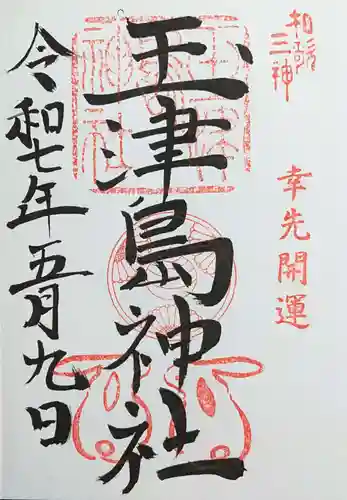 和歌三神
幸先開運
玉津島神社
令和七年五月九日